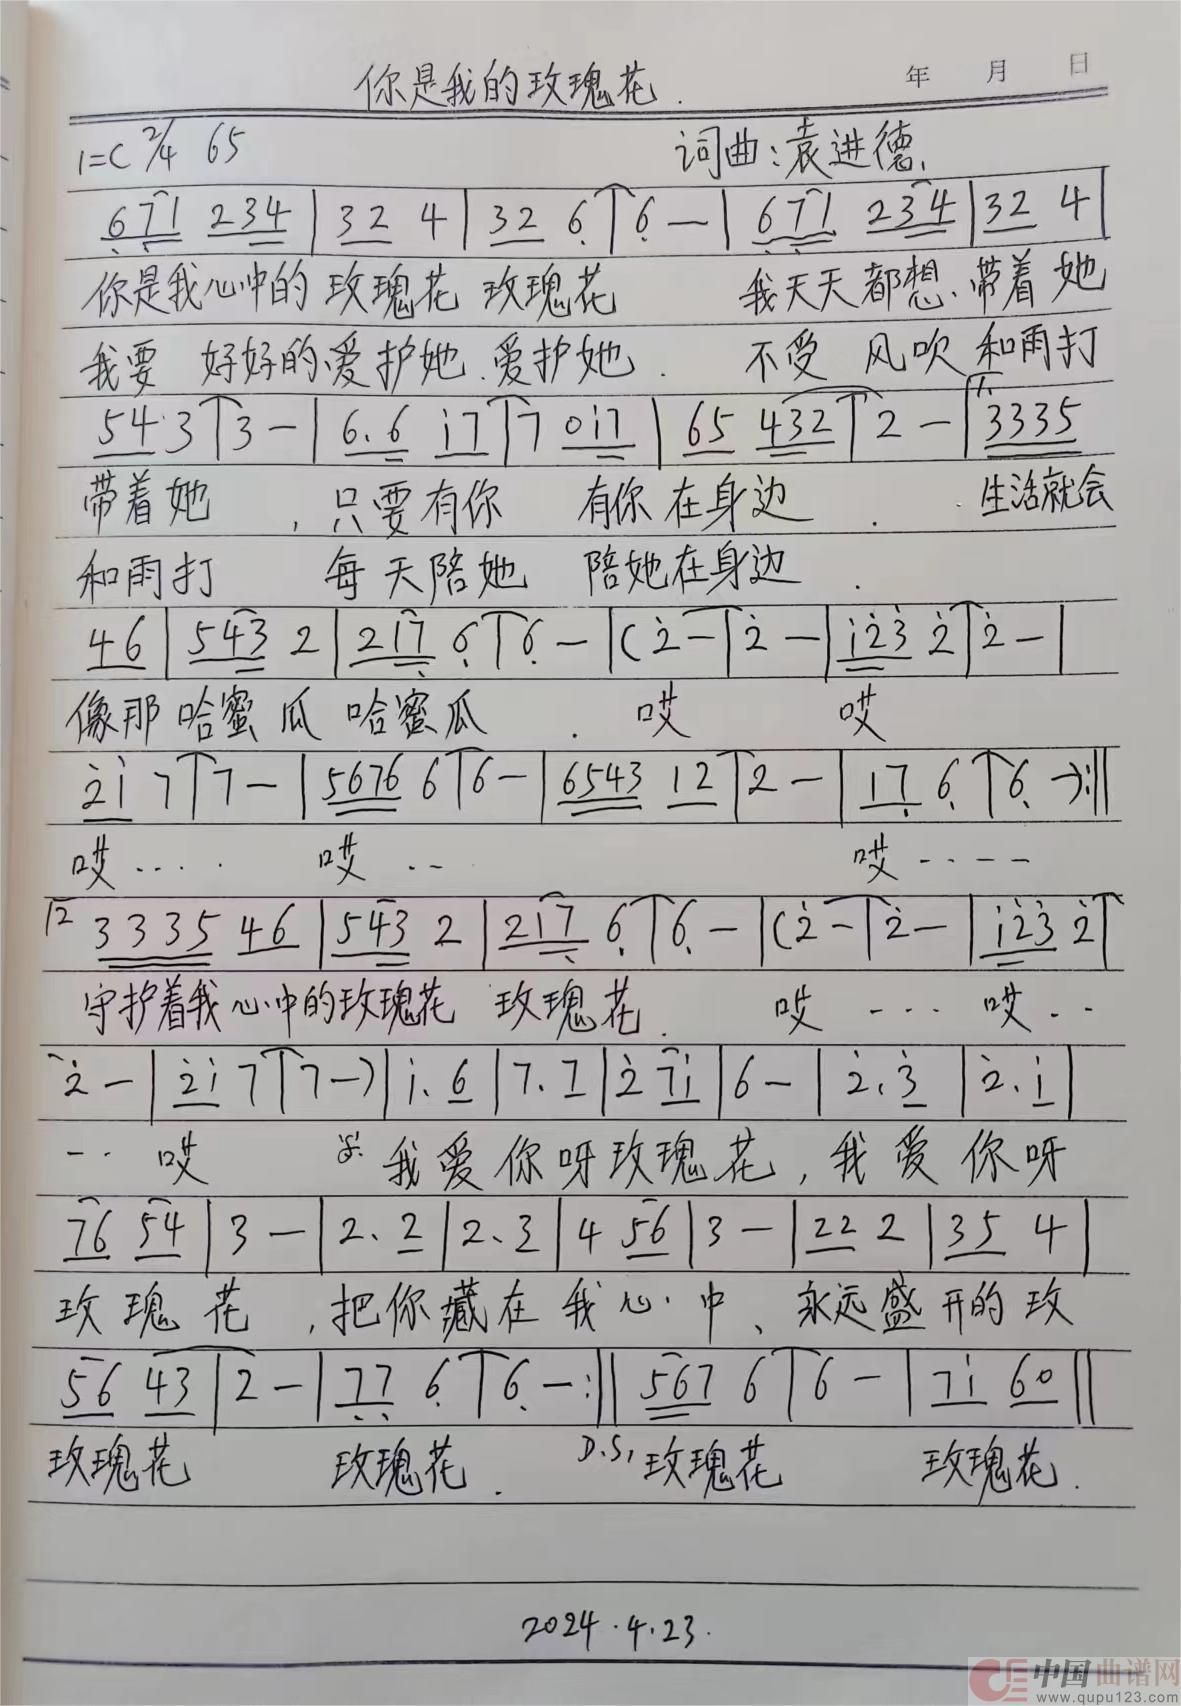 你是我的玫瑰花.
年 月 日
1=C 2/4 65 词曲:袁进德.
671 234 | 32 4 | 32 6 | 6 — | 671 234 | 32 4 |
你是我心中的 玫瑰花 玫瑰花 我天天都想、带着她
我要 好好的、爱护她、爱护她. 不受 风吹 和雨打
54·3 | 3 — | 6.6 i7 | 7 0i7 | 65 432 | 2 — | 1. 3335
带着她 , 只要有你 有你在身边 . 生活就会
和雨打 每天陪她 陪她在身边 .
46 | 543 2 | 217 6 | 6 — | (2̇ — | 2̇ — | i2̇3̇ 2̇ | 2̇ — |
像那哈蜜瓜 哈蜜瓜 . 哎 哎
2̇i 7 | 7 — | 5676 6 | 6 — | 6543 12 | 2 — | 17 6 | 6 —):||
哎 .... 哎 .. 哎 ----
2 3335 46 | 543 2 | 217 6 | 6 — | (2̇ — | 2̇ — | i2̇3̇ 2̇ |
守护着我心中的玫瑰花 玫瑰花. 哎 .... 哎 ..
2̇ — | 2̇i 7 | 7 —) | i. 6 | 7. 7 | 2̇ 7i | 6 — | 2̇. 3̇ | 2̇. i |
.. 哎 我爱你呀玫瑰花, 我爱你呀
76 54 | 3 — | 2. 2 | 2. 3 | 4 56 | 3 — | 22 2 | 35 4 |
玫瑰花 , 把你藏在我心中、永远盛开的玫
56 43 | 2 — | 77 6 | 6 —:|| 567 6 | 6 — | 7i 60 ||
玫瑰花 玫瑰花. D.S. 玫瑰花 玫瑰花.
2024.4.23.
中国曲谱网
www.qupu123.com